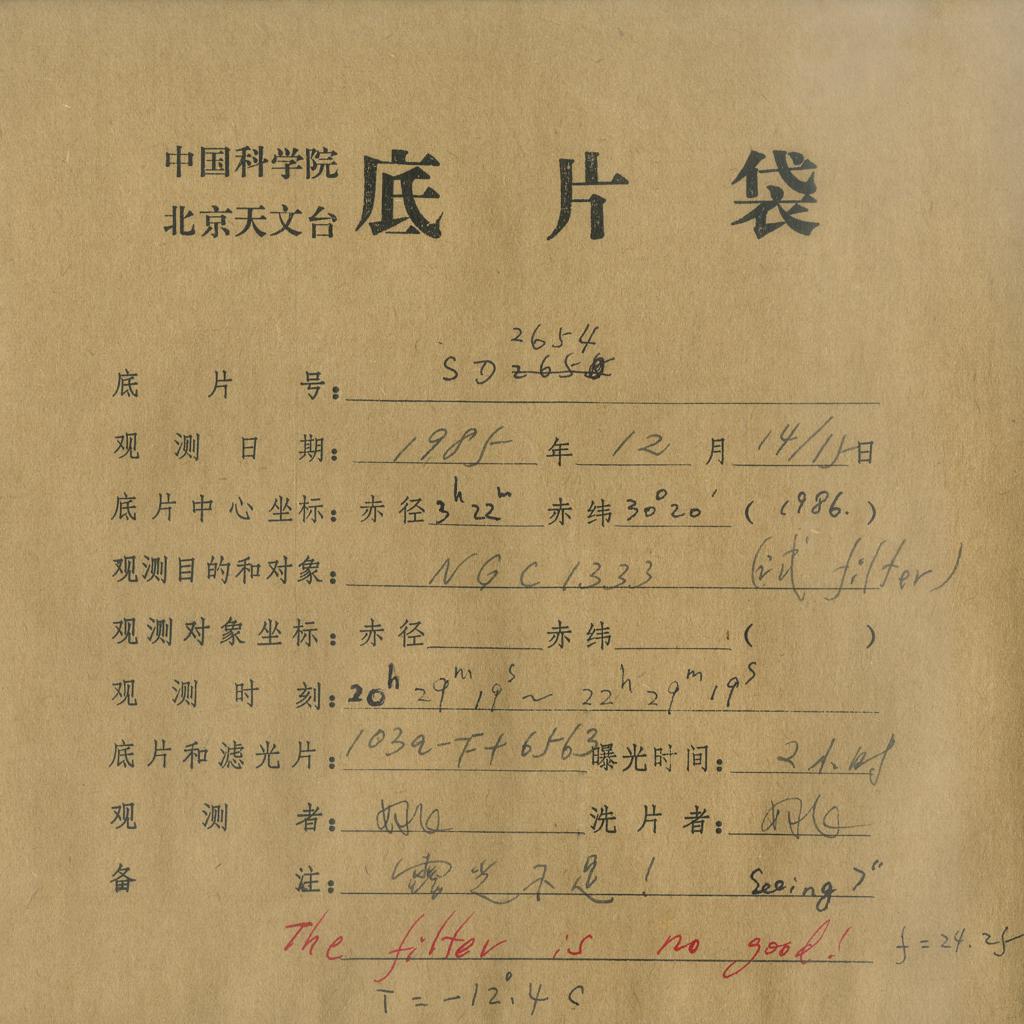 中国科学院
北京天文台 底片袋
2654
底片号: SD 265
观测日期: 1985年12月14/15日
底片中心坐标: 赤径 3h 22m 赤纬 30°20′ (1986.)
观测目的和对象: NGC 1333 (试 filter)
观测对象坐标: 赤径 赤纬 ( )
观测时刻: 20h 29m 19s ~ 22h 29m 19s
底片和滤光片: 103a-F+6563 曝光时间: 2小时
观测者: 洗片者:
备注: 露光不足! Seeing 3″
The filter is no good! f=24.25
T=-12°.4 C